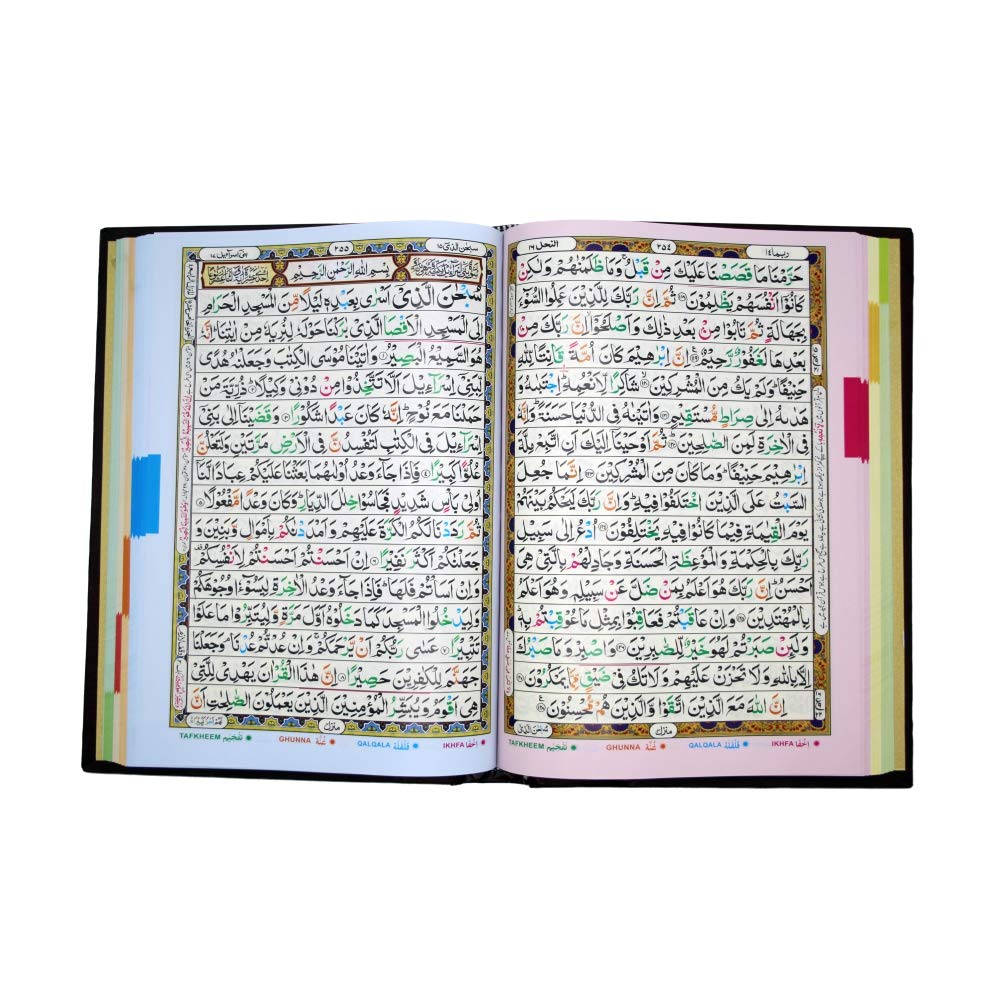 ربما ١٤
٢٥٤
النحل ١٦
حَرَّمْنَا مَا قَصَصْنَا عَلَيْكَ مِنْ قَبْلُ ۚ وَمَا ظَلَمْنٰهُمْ وَلٰكِنْ
كَانُوْٓا اَنْفُسَهُمْ يَظْلِمُوْنَ ﴿۱۱۸﴾ ثُمَّ اِنَّ رَبَّكَ لِلَّذِيْنَ عَمِلُوا السُّوْٓءَ
بِجَهَالَةٍ ثُمَّ تَابُوْا مِنْۢ بَعْدِ ذٰلِكَ وَاَصْلَحُوْٓا ۙ اِنَّ رَبَّكَ مِنْۢ
بَعْدِهَا لَغَفُوْرٌ رَّحِيْمٌ ﴿۱۱۹﴾ اِنَّ اِبْرٰهِيْمَ كَانَ اُمَّةً قَانِتًا لِّلّٰهِ
حَنِيْفًا ؕ وَلَمْ يَكُ مِنَ الْمُشْرِكِيْنَ ﴿۱۲۰﴾ شَاكِرًا لِّاَنْعُمِهٖ ؕ اِجْتَبٰىهُ وَ
هَدٰىهُ اِلٰى صِرَاطٍ مُّسْتَقِيْمٍ ﴿۱۲۱﴾ وَاٰتَيْنٰهُ فِي الدُّنْيَا حَسَنَةً ؕ وَاِنَّهٗ
فِي الْاٰخِرَةِ لَمِنَ الصّٰلِحِيْنَ ﴿۱۲۲﴾ ثُمَّ اَوْحَيْنَآ اِلَيْكَ اَنِ اتَّبِعْ مِلَّةَ
اِبْرٰهِيْمَ حَنِيْفًا ؕ وَمَا كَانَ مِنَ الْمُشْرِكِيْنَ ﴿۱۲۳﴾ اِنَّمَا جُعِلَ
السَّبْتُ عَلَى الَّذِيْنَ اخْتَلَفُوْا فِيْهِ ؕ وَاِنَّ رَبَّكَ لَيَحْكُمُ بَيْنَهُمْ
يَوْمَ الْقِيٰمَةِ فِيْمَا كَانُوْا فِيْهِ يَخْتَلِفُوْنَ ﴿۱۲۴﴾ اُدْعُ اِلٰى سَبِيْلِ
رَبِّكَ بِالْحِكْمَةِ وَالْمَوْعِظَةِ الْحَسَنَةِ وَجَادِلْهُمْ بِالَّتِيْ هِيَ
اَحْسَنُ ؕ اِنَّ رَبَّكَ هُوَ اَعْلَمُ بِمَنْ ضَلَّ عَنْ سَبِيْلِهٖ وَهُوَ اَعْلَمُ
بِالْمُهْتَدِيْنَ ﴿۱۲۵﴾ وَاِنْ عَاقَبْتُمْ فَعَاقِبُوْا بِمِثْلِ مَا عُوْقِبْتُمْ بِهٖ ؕ
وَلَئِنْ صَبَرْتُمْ لَهُوَ خَيْرٌ لِّلصّٰبِرِيْنَ ﴿۱۲۶﴾ وَاصْبِرْ وَمَا صَبْرُكَ
اِلَّا بِاللّٰهِ وَلَا تَحْزَنْ عَلَيْهِمْ وَلَا تَكُ فِيْ ضَيْقٍ مِّمَّا يَمْكُرُوْنَ ﴿۱۲۷﴾
اِنَّ اللّٰهَ مَعَ الَّذِيْنَ اتَّقَوْا وَّالَّذِيْنَ هُمْ مُّحْسِنُوْنَ ﴿۱۲۸﴾
منزل
IKHFA اخفا QALQALA قلقلة GHUNNA غنة TAFKHEEM تفخيم
سبحن الذي ١٥
٢٥٥
بني اسرآءيل ١٧
بِسْمِ اللّٰهِ الرَّحْمٰنِ الرَّحِيْمِ
سُبْحٰنَ الَّذِيْٓ اَسْرٰى بِعَبْدِهٖ لَيْلًا مِّنَ الْمَسْجِدِ الْحَرَامِ
اِلَى الْمَسْجِدِ الْاَقْصَا الَّذِيْ بٰرَكْنَا حَوْلَهٗ لِنُرِيَهٗ مِنْ اٰيٰتِنَا ؕ اِنَّهٗ
هُوَ السَّمِيْعُ الْبَصِيْرُ ﴿۱﴾ وَاٰتَيْنَا مُوْسَى الْكِتٰبَ وَجَعَلْنٰهُ هُدًى
لِّبَنِيْٓ اِسْرَآءِيْلَ اَلَّا تَتَّخِذُوْا مِنْ دُوْنِيْ وَكِيْلًا ﴿۲﴾ ذُرِّيَّةَ مَنْ
حَمَلْنَا مَعَ نُوْحٍ ؕ اِنَّهٗ كَانَ عَبْدًا شَكُوْرًا ﴿۳﴾ وَقَضَيْنَآ اِلٰى بَنِيْٓ
اِسْرَآءِيْلَ فِي الْكِتٰبِ لَتُفْسِدُنَّ فِي الْاَرْضِ مَرَّتَيْنِ وَلَتَعْلُنَّ
عُلُوًّا كَبِيْرًا ﴿۴﴾ فَاِذَا جَآءَ وَعْدُ اُوْلٰىهُمَا بَعَثْنَا عَلَيْكُمْ عِبَادًا لَّنَآ
اُولِيْ بَاْسٍ شَدِيْدٍ فَجَاسُوْا خِلٰلَ الدِّيَارِ ؕ وَكَانَ وَعْدًا مَّفْعُوْلًا ﴿۵﴾
ثُمَّ رَدَدْنَا لَكُمُ الْكَرَّةَ عَلَيْهِمْ وَاَمْدَدْنٰكُمْ بِاَمْوَالٍ وَّبَنِيْنَ وَ
جَعَلْنٰكُمْ اَكْثَرَ نَفِيْرًا ﴿۶﴾ اِنْ اَحْسَنْتُمْ اَحْسَنْتُمْ لِاَنْفُسِكُمْ ۟
وَاِنْ اَسَاْتُمْ فَلَهَا ؕ فَاِذَا جَآءَ وَعْدُ الْاٰخِرَةِ لِيَسُوْٓءٗا وُجُوْهَكُمْ
وَلِيَدْخُلُوا الْمَسْجِدَ كَمَا دَخَلُوْهُ اَوَّلَ مَرَّةٍ وَّلِيُتَبِّرُوْا مَا عَلَوْا
تَتْبِيْرًا ﴿۷﴾ عَسٰى رَبُّكُمْ اَنْ يَّرْحَمَكُمْ ۚ وَاِنْ عُدْتُّمْ عُدْنَا ۘ وَجَعَلْنَا
جَهَنَّمَ لِلْكٰفِرِيْنَ حَصِيْرًا ﴿۸﴾ اِنَّ هٰذَا الْقُرْاٰنَ يَهْدِيْ لِلَّتِيْ
هِيَ اَقْوَمُ وَيُبَشِّرُ الْمُؤْمِنِيْنَ الَّذِيْنَ يَعْمَلُوْنَ الصّٰلِحٰتِ اَنَّ
منزل
IKHFA اخفا QALQALA قلقلة GHUNNA غنة TAFKHEEM تفخيم